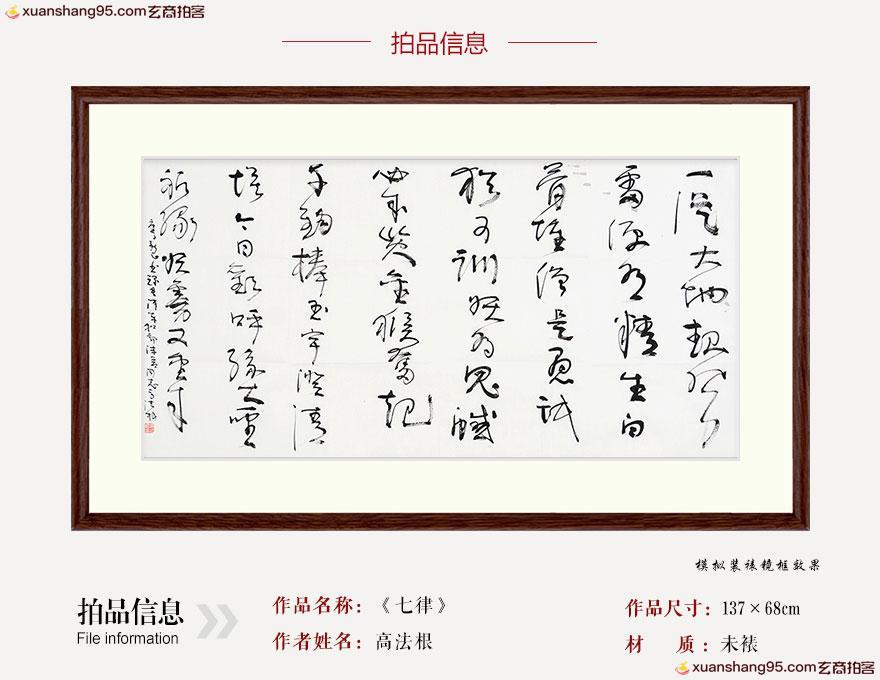 xuanshang95.com玄商拍客
拍品信息
一從大地起風
雷便有精生白
骨堆僧是愚氓
猶可訓妖為鬼蜮
必成災金猴奮起
千鈞棒玉宇澄清
埃今日歡呼孫大聖
只緣妖霧又重來
毛澤東和郭沫若同志高法根
模拟装裱镜框效果
拍品信息
File information
作品名称：《七律》
作者姓名：高法根
作品尺寸：137×68cm
材 质：未裱
xuanshang95.com玄商拍客